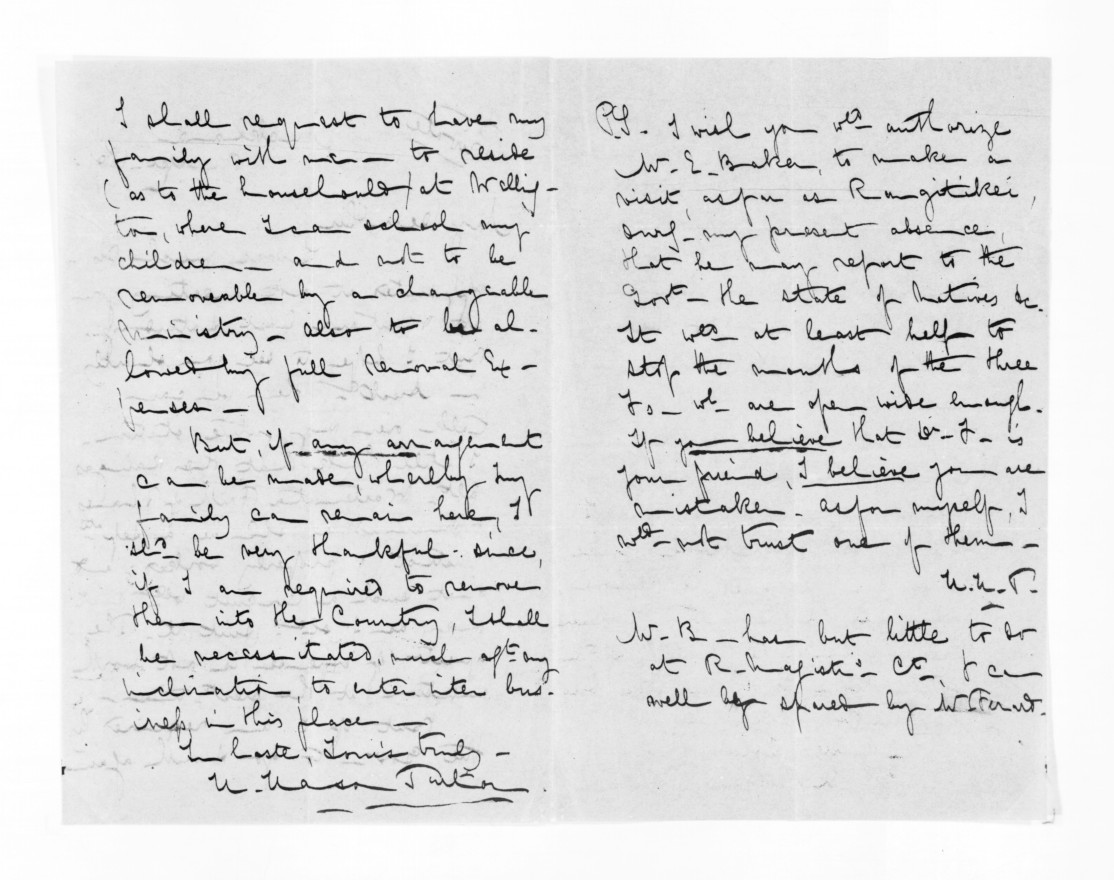 I shall request to have my
family with me – to reside
(as to the household) at Welling-
ton, where I can school my
children – and not to be
removeable by a changeable
Ministry – also to be al-
lowed my full removal Ex-
penses –
But, if any arrangement
can be made, whereby my
family can remain here, I
shd. be very thankful. since,
if I am required to remove
them into the Country, I shall
be necessitated, much agst. my
inclination to enter into bus-
iness, in this place –
In haste, Yours truly –
H. Hanson Turton
P.S. I wish you wld. authorize
Mr. E. Baker, to make a
visit, as far as Rangitikei,
during my present absence,
that he may report to the
Govt. – the state of Natives &c.
It wld. at least help to
stop the mouths of the three
Fs – wh. are open wide enough.
If you believe that Dr. F – is
your friend, I believe you are
mistaken. as for myself, I
wld. not trust one of them –
H.H.T.
Mr. B – has but little to do
at R. Magist's Ct., & can
well be spared by Mr